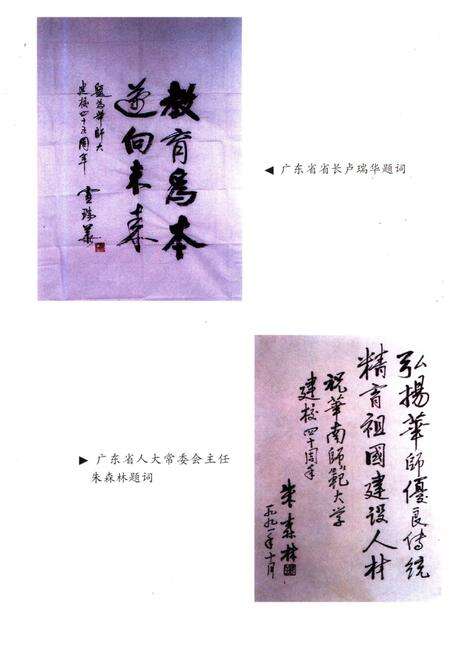 教育爲本
向未来
題为華師大
建校四十五周年
盧瑞華
◀ 广东省省长卢瑞华题词
弘揚華師優良传统
精育祖國建设人材
祝華南師範大学
建校四十周年
朱森林
一九九一年十月
▶ 广东省人大常委会主任
朱森林题词